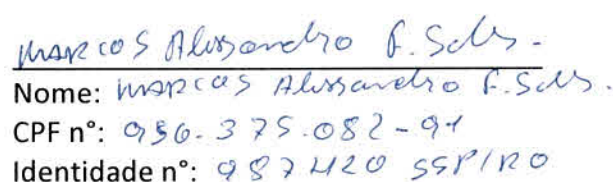 Marcos Alissandro F. Sales.
Nome: Marcos Alissandro F. Sales.
CPF n°: 956.375.082-91
Identidade n°: 987420 SSP/RO